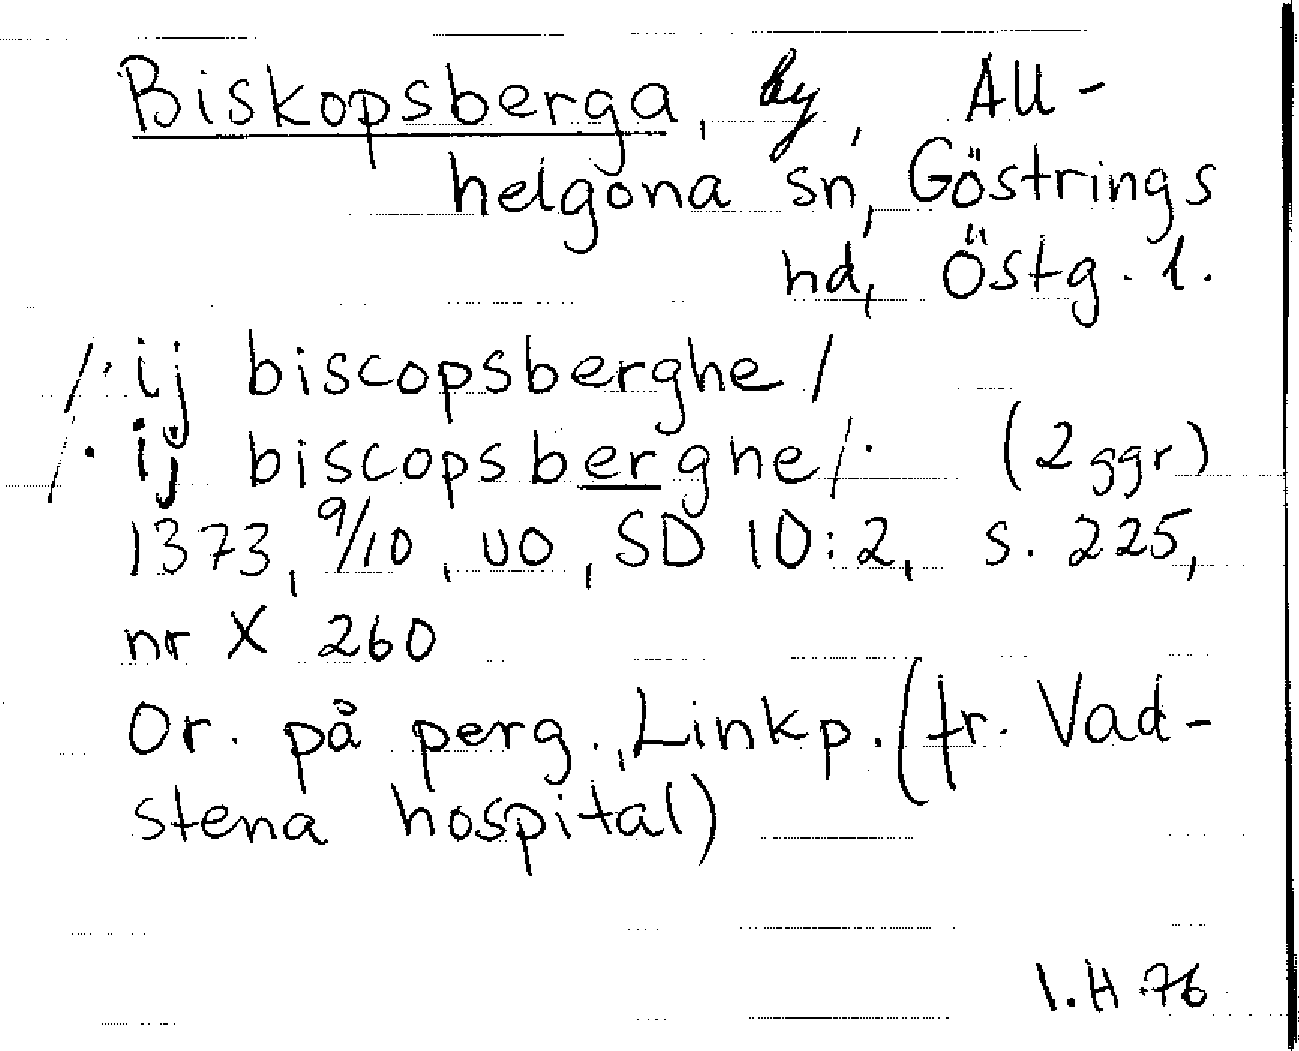 Biskopsberga, by, All-
helgona sn, Göstrings
hd, Östg. l.
/· ij biscopsberghe /
/· ij biscopsberghe /· (2 ggr)
1373, 9/10, uo, SD 10:2, s. 225,
nr X 260
Or. på perg., Linkp. (fr. Vad-
stena hospital)
I.H 76